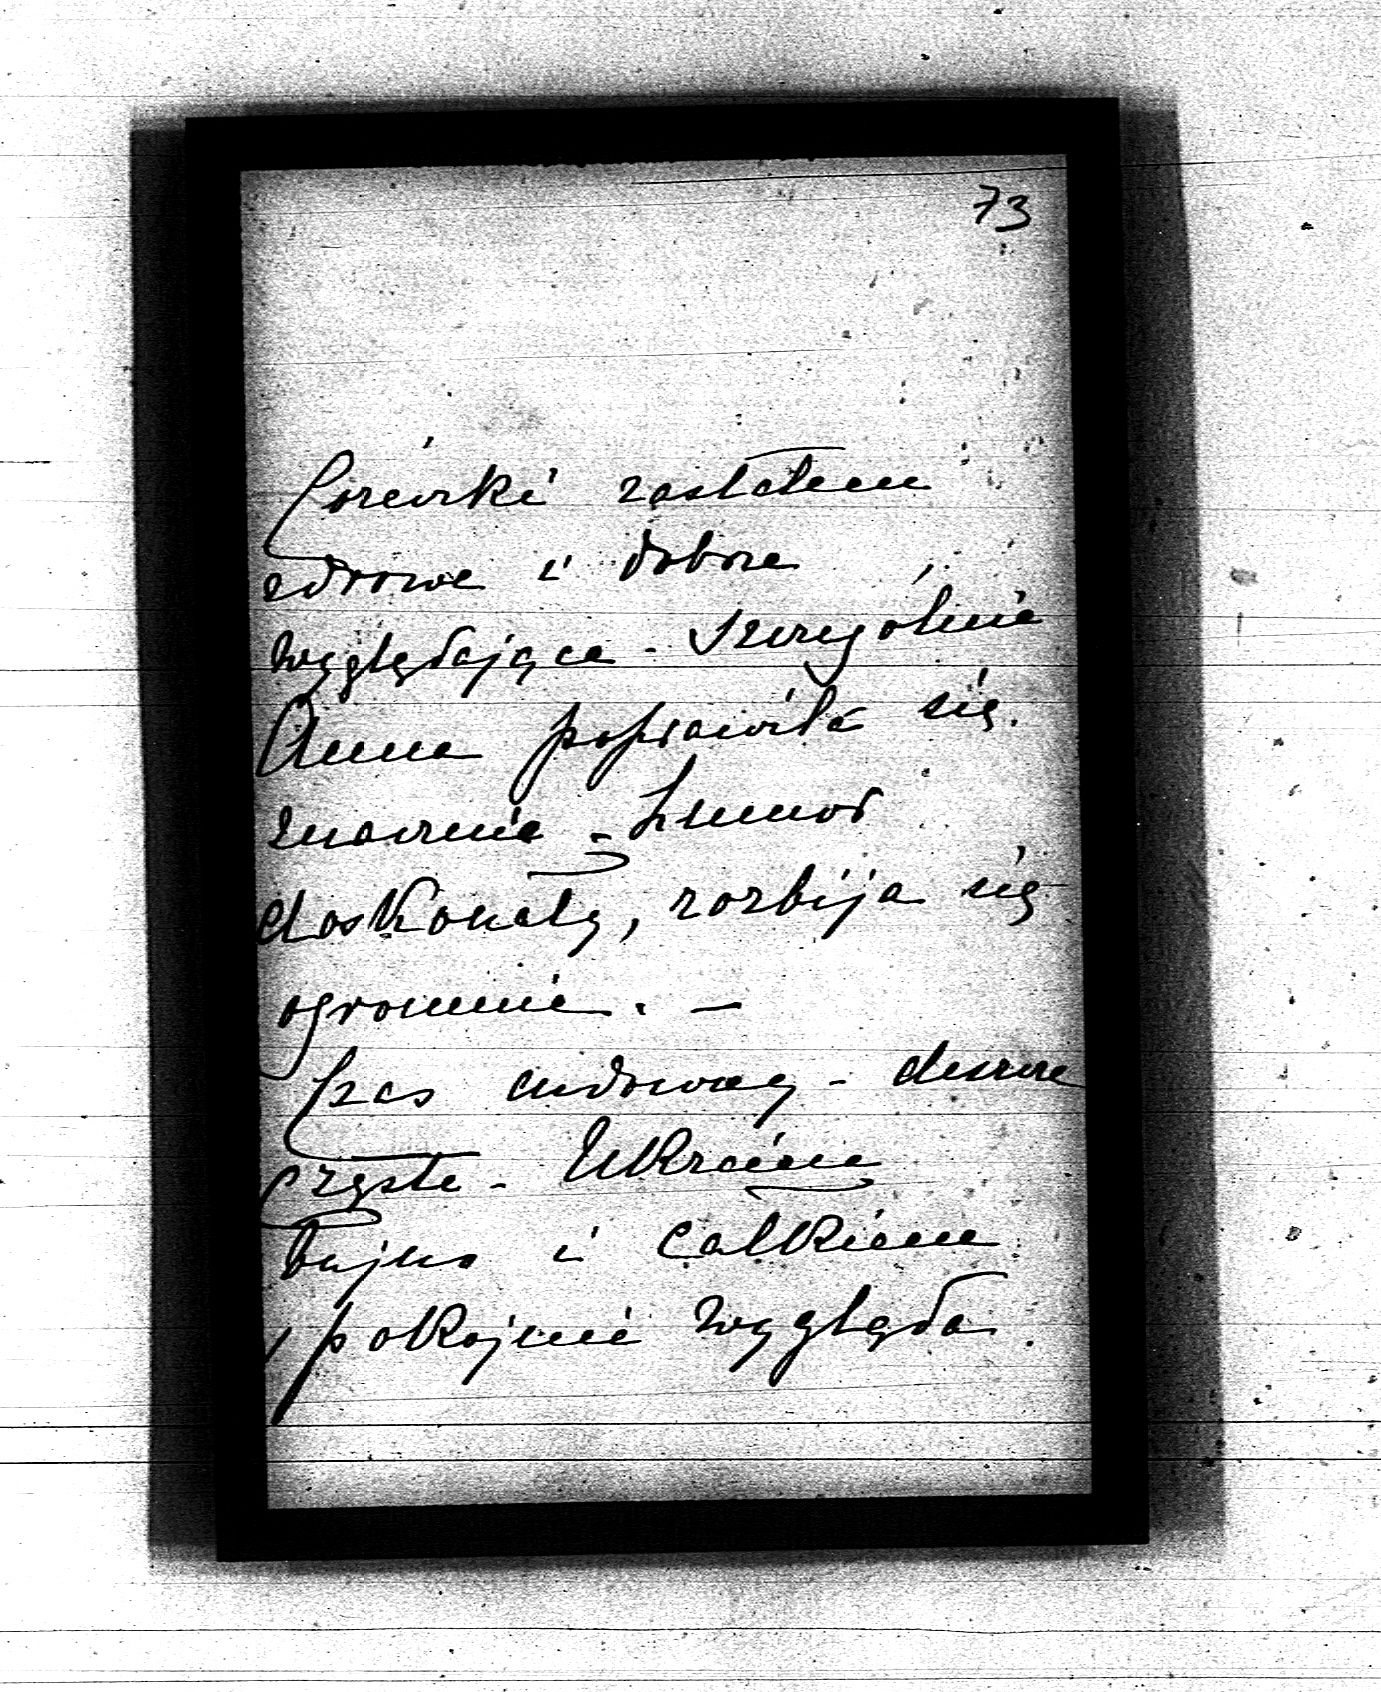 73
Córeczki zastałem
zdrowe i dobrze
wyglądające - szczególnie
Anna poprawiła się
znacznie - humor
doskonały, rozbija się
ogromnie. -
Czas cudowny - deszcze
częste - Ukraina
bujno i całkiem
spokojnie wygląda.